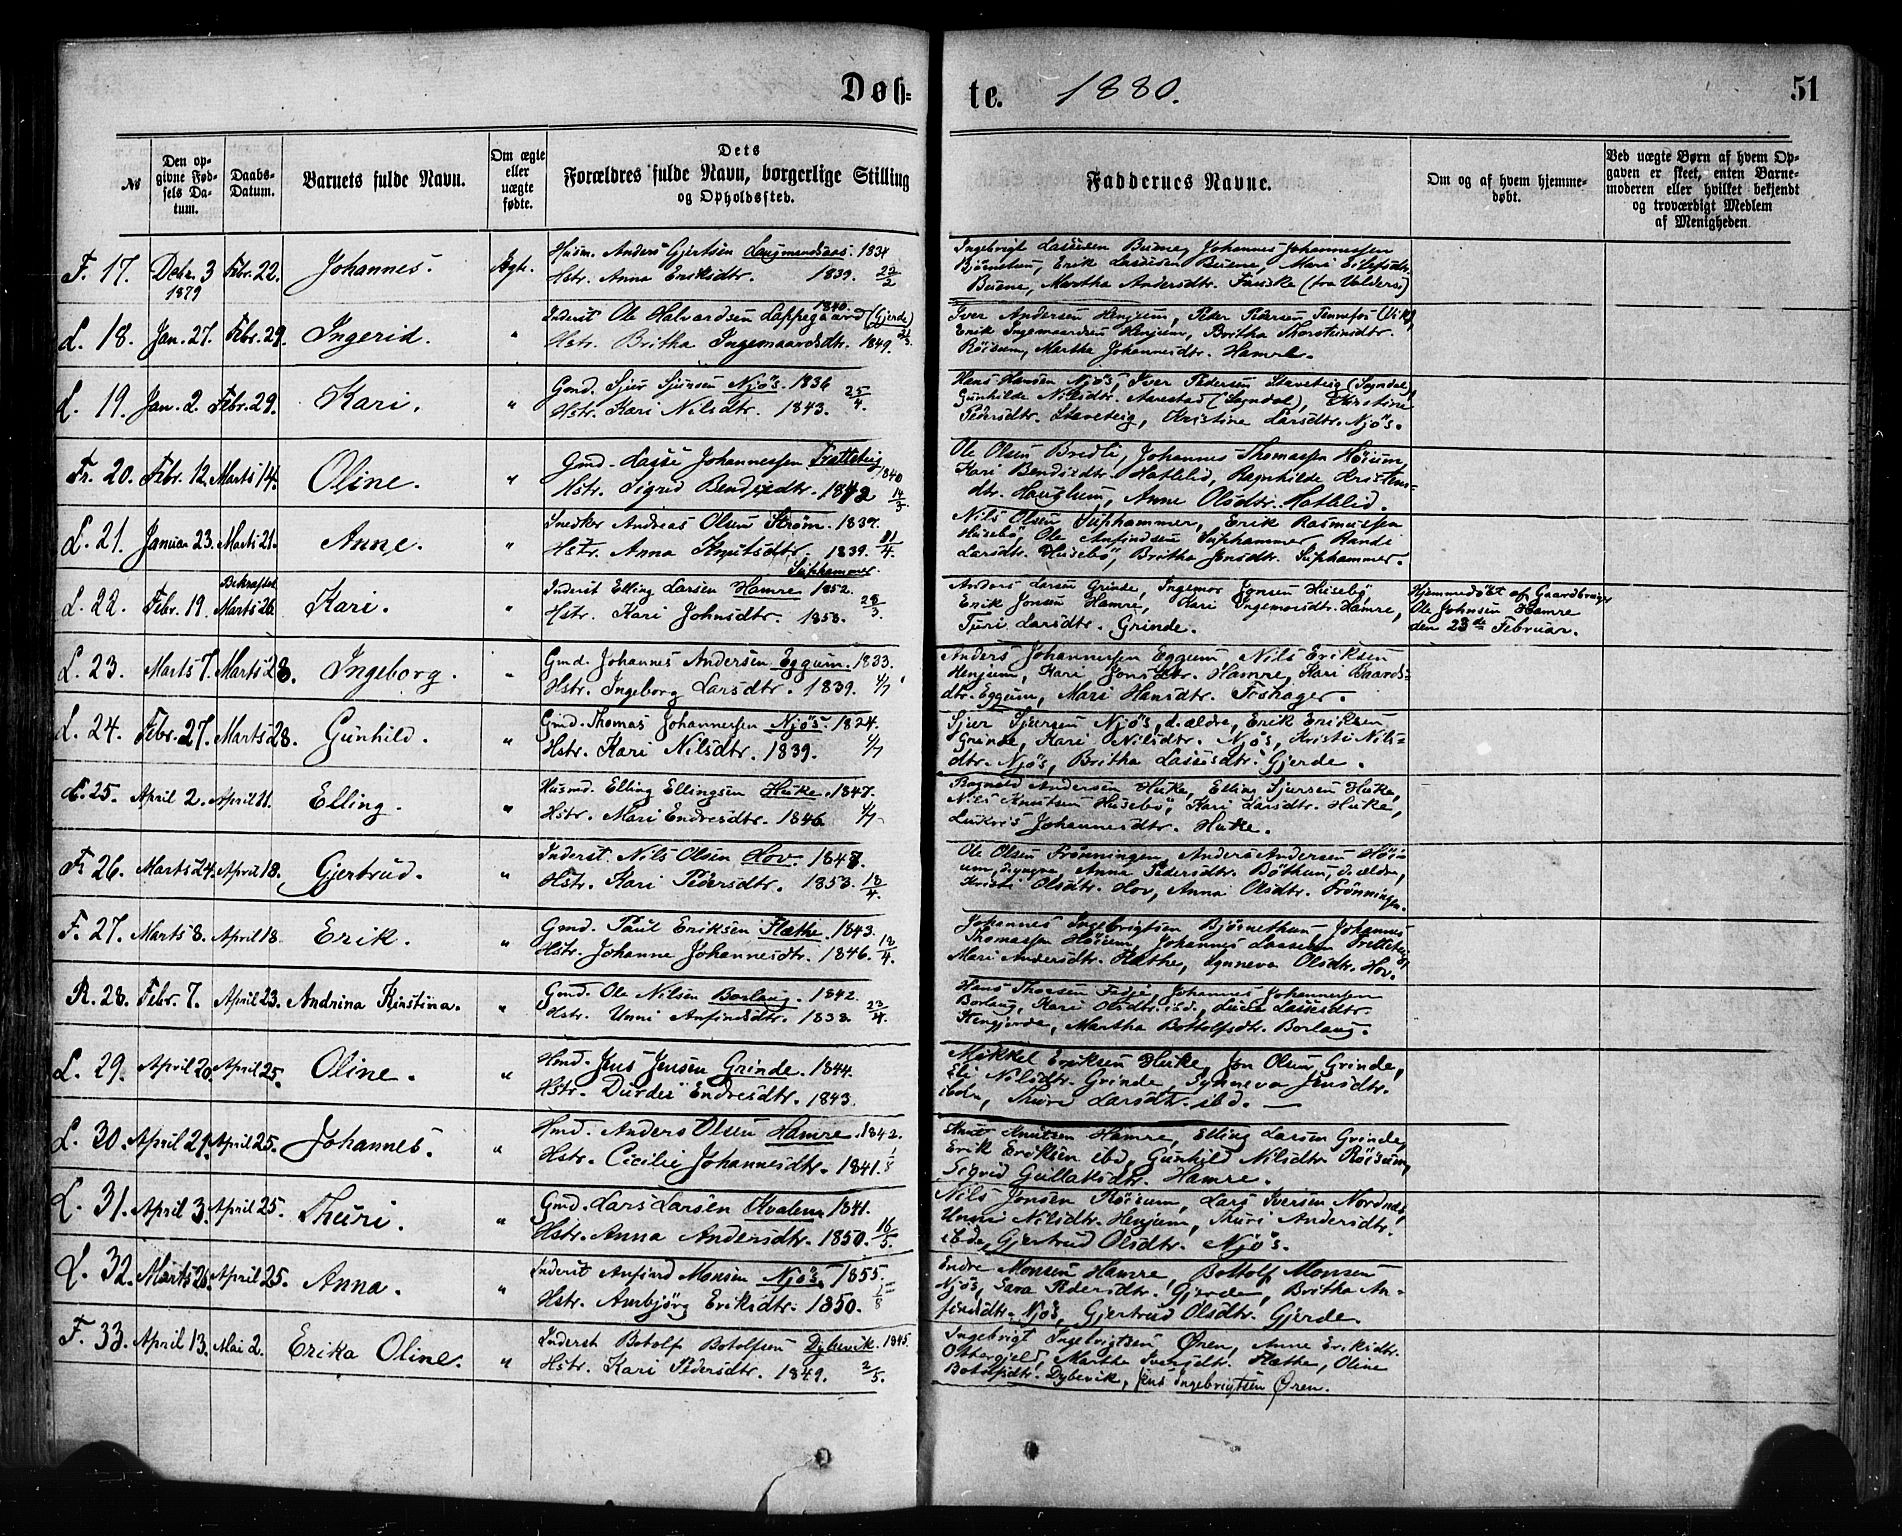 Døb=
te. 1880.
51
№
Den op-
givne Fød-
sels Da-
tum.
Daabs-
Datum.
Barnets fulde Navn.
Om ægte
eller
uægte
fødte.
Dets
Forældres fulde Navn, borgerlige Stilling
og Opholdssted.
Faddernes Navne.
Om og af hvem hjemme-
døbt.
Ved uægte Børn af hvem Op-
gaven er skeet, enten Barne-
moderen eller hvilket bekjendt
og troværdigt Medlem
af Menigheden.
F. 17. Debr. 3 1879 Febr. 22. Johannes. Ægt.
Husm. Anders Gjertsen 1834
Hstr. Anna Eriksdtr. 1839. 22/2
Ingebrigt Lassesen Buene, Johannes Johannessen
Bjørnetun, Erik Lassesen Buene, Mari
Buene, Martha Andersdtr. (fra Valders)
L. 18. Jan. 27. Febr. 29. Ingerid. "
Inderst Ole Halvardsen Lappegaard 1840. (Gjerde)
Hstr. Britha Ingemaardsdtr. 1849.
Iver Andersen Henjum, Peter Petersen Finnefos (Vik),
Erik Ingemaardsen Henjum, Britha Thorsteinsdtr.
Røisum, Martha Johannesdtr. Hamre.
L. 19. Jan. 2. Febr. 29. Kari. "
Gmd. Sjur Sjursen Njøs. 1836
Hstr. Kari Nilsdtr. 1843. 25/4.
Hans Hansen Njøs, Iver Pedersen Staveteig (Sogndal)
Gunhilde Nilsdtr. Aarestad (Sogndal), Kirstine
Pedersdtr. Staveteig, Kristine Larsdtr. Njøs.
Fr. 20. Febr. 12. Marts 14. Oline. "
Gmd. Lasse Johannessen Fretteteig 1840
Hstr. Sigrid Bendixdtr. 1842 14/3.
Ole Olsen Bredli, Johannes Thomassen Høium,
Kari Bendixdtr. Hatlelid, Ragnhilde Kristens-
dtr. Haughum, Anne Olsdtr. Hatlelid.
L. 21. Januar 23. Marts 21. Anne. "
Snedker Andreas Olsen Strøm. 1839.
Hstr. Anna Knutsdtr. 1839. 11/4.
Süphammer
Nils Olsen Süphammer, Erik Rasmussen
Husebø, Ole Anfindsen Süphammer, Randi
Larsdtr. Husebø, Britha Jensdtr. Süphammer.
L. 22. Febr. 19. Bekræftet Marts 26. Kari. "
Inderst Elling Larsen Hamre 1852.
Hstr. Kari Johnsdtr. 1858. 28/3.
Anders Larsen Grinde, Ingemor Jonsen Husebø,
Erik Jonsen Hamre, Kari Ingemorsdtr. Hamre,
Turi Larsdtr. Grinde.
Hjemmedøbt af Gaardbruger
Ole Johnsen Hamre
den 23de Februar.
L. 23. Marts 7. Marts 28. Ingeborg. "
Gmd. Johannes Andersen Eggum. 1833.
Hstr. Ingeborg Larsdtr. 1839. 4/7
Anders Johannessen Eggum, Nils Eriksen
Henjum, Kari Jonsdtr. Hamre, Kari Baards-
dtr. Eggum, Mari Hansdtr.
L. 24. Febr. 27. Marts 28. Gunhild. "
Gmd. Thomas Johannessen Njøs. 1824.
Hstr. Kari Nilsdtr. 1839. 4/7
Sjur Sjursen Njøs, d. ældre, Erik Eriksen
Grinde, Kari Nilsdtr. Njøs, Kristi Nils-
dtr. Njøs, Britha Lassesdtr. Gjerde.
L. 25. April 2. April 11. Elling. "
Husmd. Elling Ellingsen Huke. 1847.
Hstr. Mari Endresdtr. 1846. 4/7
Andersen Huke, Elling Sjursen Huke,
Nils Knutsen Husebø, Kari Larsdtr. Huke,
Johannesdtr. Huke.
Fr. 26. Marts 24. April 18. Gjertrud. "
Inderst. Nils Olsen Hov. 1847.
Hstr. Kari Pedersdtr. 1853. 18/4.
Ole Olsen Frønningen, Anders Andersen Høi-
um, d. yngre, Anna Pedersdtr. Bøthun, d. ældre,
Kristi Olsdtr. Hov, Anna Olsdtr. Frønningen.
F. 27. Marts 8. April 18. Erik. "
Gmd. Paul Eriksen Flæthe. 1843.
Hstr. Johanne Johannesdtr. 1846. 18/4.
Johannes Ingebrigtsen Bjørnethun, Johannes
Thomassen Høium, Johannes Lassesen Fretteteig,
Mari Andersdtr. Flæthe, Synneva Olsdtr. Hov.
R. 28. Febr. 7. April 23. Andrina Kirstina. "
Gmd. Ole Nilsen Borlaug. 1842.
Hstr. Unni Anfindsdtr. 1838. 23/4.
Hans Thoresen Fedje, Johannes Johannessen
Borlaug, Kari Olsdtr. ibd., Lucie Lassesdtr.
Kengjerde, Martha Bottolfsdtr. Borlaug.
L. 29. April 20. April 25. Oline. "
Hmd. Jens Jensen Grinde. 1844.
Hstr. Durdei Endresdtr. 1843.
Mikkel Eriksen Huke, Jon Olsen Grinde,
Eli Nilsdtr. Grinde, Synneva Jensdtr.
ibdm, Thuri Larsdtr. ibd. —
L. 30. April 21. April 25. Johannes. "
Hmd. Anders Olsen Hamre. 1842.
Hstr. Cicilie Johannesdtr. 1841. 1/8
Knut Knutsen Hamre, Elling Larsen Grinde,
Erik Eriksen ibd, Gunhild Nilsdtr. Røisum,
Sigrid Gullaksdtr. Hamre.
L. 31. April 3. April 25. Thuri. "
Gmd. Lars Larsen Kvalem 1841.
Hstr. Anna Andersdtr. 1850. 16/5.
Nils Jonsen Røisum, Lars Iversen Nordnæs,
Unni Nilsdtr. Henjum, Thuri Andersdtr.
ibd., Gjertrud Olsdtr. Njøs.
L. 32. Marts 26. April 25. Anna. "
Inderst Anfind Monsen Njøs. 1855.
Hstr. Ambjørg Eriksdtr. 1850. 1/8
Endre Monsen Hamre, Bottolf Monsen
Njøs, Sara Pedersdtr. Gjerde, Britha An-
finsdtr. Njøs, Gjertrud Olsdtr. Gjerde.
F. 33. April 13. Mai 2. Erika Oline. "
Inderst Botolf Botolfsen Dybevik. 1845.
Hstr. Kari Pedersdtr. 1849. 2/5.
Ingebrigt Ingebrigtsen Øren, Anne Eriksdtr.
Ottergjeld, Martha Iversdtr. Flæthe, Oline
Botolfsdtr. Dybevik, Jens Ingebrigtsen Øren.